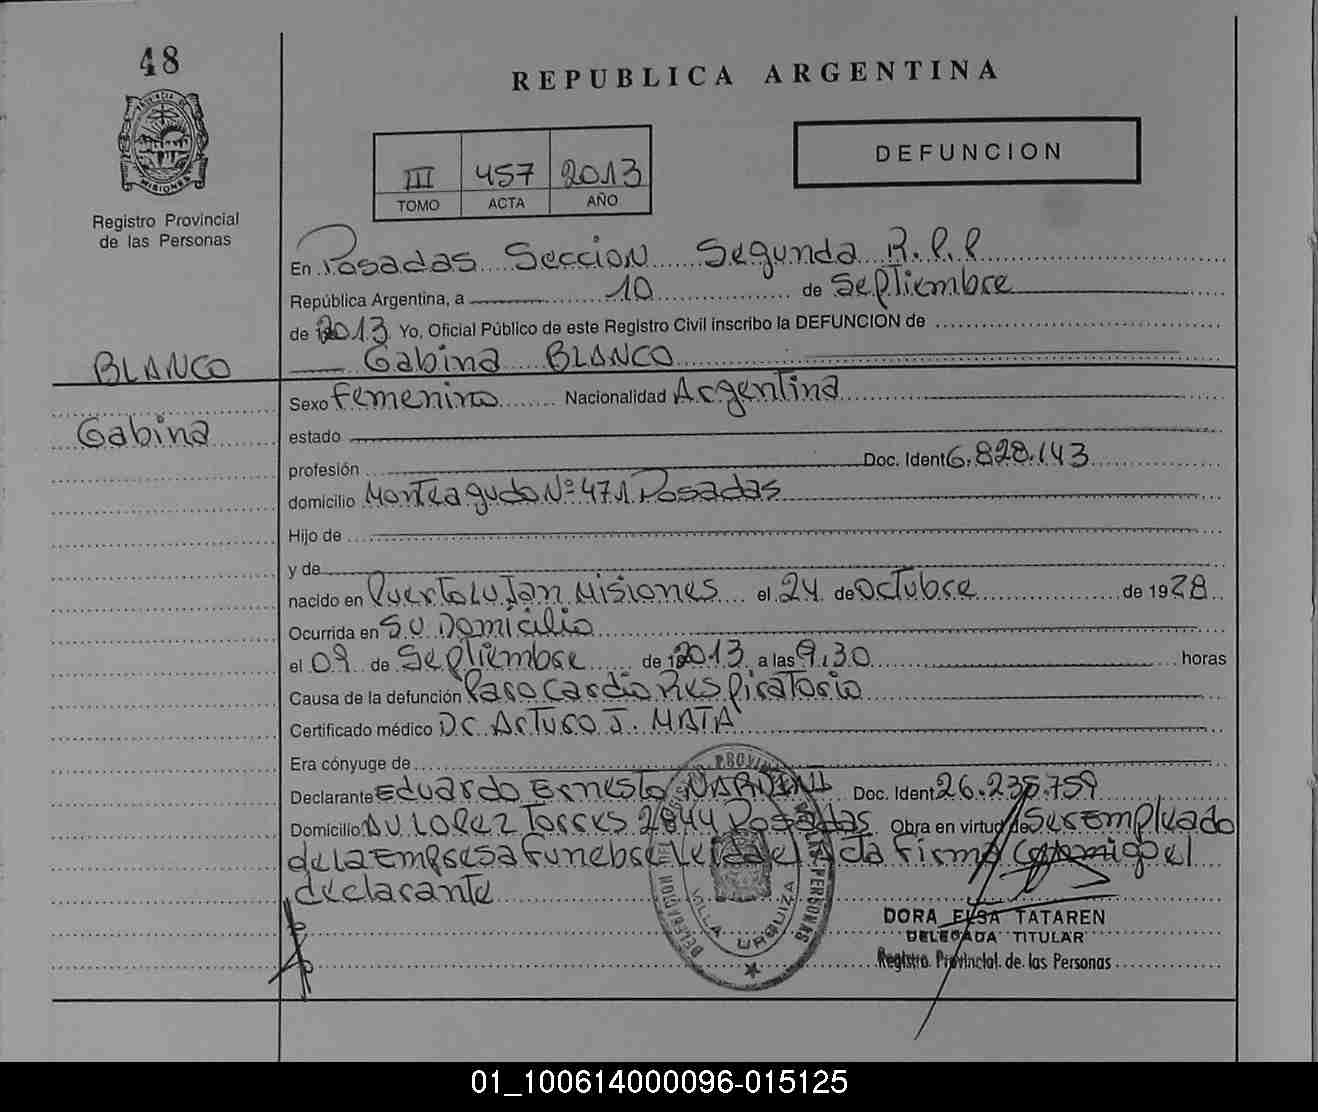 48
PROVINCIA DE
MISIONES
Registro Provincial
de las Personas
BLANCO
Gabina
REPUBLICA ARGENTINA
III 457 2013
TOMO ACTA AÑO
DEFUNCION
En Posadas Seccion Segunda R.P.P
República Argentina, a 10 de Septiembre
de 2013 Yo, Oficial Público de este Registro Civil inscribo la DEFUNCION de
Gabina BLANCO
Sexo Femenino Nacionalidad Argentina
estado
profesión Doc. Ident 6.828.143
domicilio Monteagudo Nº 471 Posadas
Hijo de
y de
nacido en Puerto Lujan Misiones el 24 de Octubre de 1928
Ocurrida en Su Domicilio
el 09 de Septiembre de 2013 a las 9:30 horas
Causa de la defunción Paro Cardio Respiratorio
Certificado médico Dr. Arturo J. MATA
Era cónyuge de
Declarante Eduardo Ernesto NARDINI Doc. Ident 26.235.759
Domicilio AV. Lopez Torres 2844 Posadas Obra en virtud de Ser Empleado
de la Empresa Funebre Leida el Acta Firma Conmigo el
declarante
DELEGACION VILLA URQUIZA
DORA ELSA TATAREN
DELEGADA TITULAR
Registro Provincial de las Personas
01_100614000096-015125